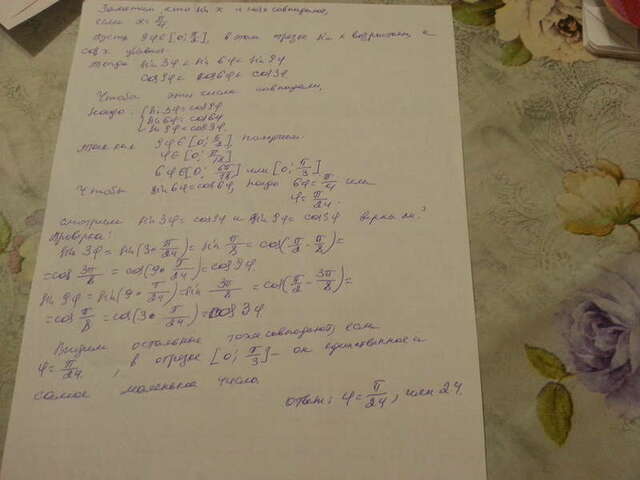 Заметим что sin x и cos x совпадают,
если x = π/4
пусть 9φ∈[0; π/2], в этом отрезке sin x возрастает и
cos x убывает.
тогда sin 3φ < sin 6φ < sin 9φ
cos 9φ < cos 6φ < cos 3φ
Чтобы эти числа совпадали,
надо {sin 3φ = cos 9φ
sin 6φ = cos 6φ
sin 9φ = cos 3φ
Так как 9φ∈[0; π/2], получим
φ∈[0; π/18]
6φ∈[0; 6π/18] или [0; π/3]
Чтобы sin 6φ = cos 6φ, надо 6φ = π/4 или
φ = π/24.
смотрим sin 3φ = cos 9φ и sin 9φ = cos 3φ верно ли?
Проверка:
sin 3φ = sin(3·π/24) = sin π/8 = cos(π/2 - π/8) =
= cos 3π/8 = cos(9·π/24) = cos 9φ.
sin 9φ = sin(9·π/24) = sin 3π/8 = cos(π/2 - 3π/8) =
= cos π/8 = cos(3·π/24) = cos 3φ
Видим остальные тоже совпадают, если
φ = π/24, в отрезке [0; π/3] - он единственное и
самое маленькое число.
ответ: φ = π/24, или 24.